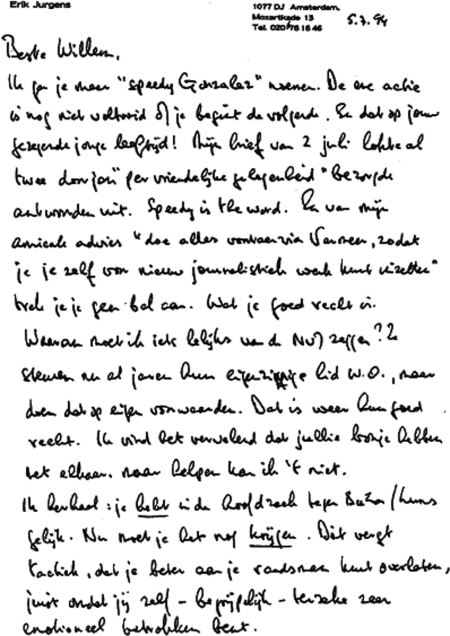 Erik Jurgens
1077 DJ Amsterdam,
Mozartkade 13
Tel. 020/76 16 46
5.7.94
Beste Willem,
Ik ga je maar "speedy Gonzalez" noemen. De ene actie
is nog niet voltooid of je begint de volgende. En dat op jouw
gezegende jonge leeftijd! Mijn brief van 2 juli lokte al
twee door jou "per vriendelijke gelegenheid" bezorgde
antwoorden uit. Speedy is the word. En van mijn
amicale advies "doe alles voortaan via Vermeer, zodat
je je zelf voor nieuw journalistiek werk kunt inzetten"
trok je je geen bal aan. Wat je goed recht is.
Waarom moet ik iets lelijks van de NVJ zeggen? Ze
steunen nu al jaren hun eigenzinnige lid W.O., maar
doen dat op eigen voorwaarden. Dat is weer hun goed
recht. Ik vind het vervelend dat jullie bonje hebben
met elkaar. maar helpen kan ik 't niet.
Ik herhaal: je hebt in de hoofdzaak tegen
gelijk. Nu moet je het nog krijgen. Dat vergt
tactiek, dat je beter aan je raadsman kunt overlaten,
juist omdat jij zelf – begrijpelijk – terzake zeer
emotioneel betrokken bent.